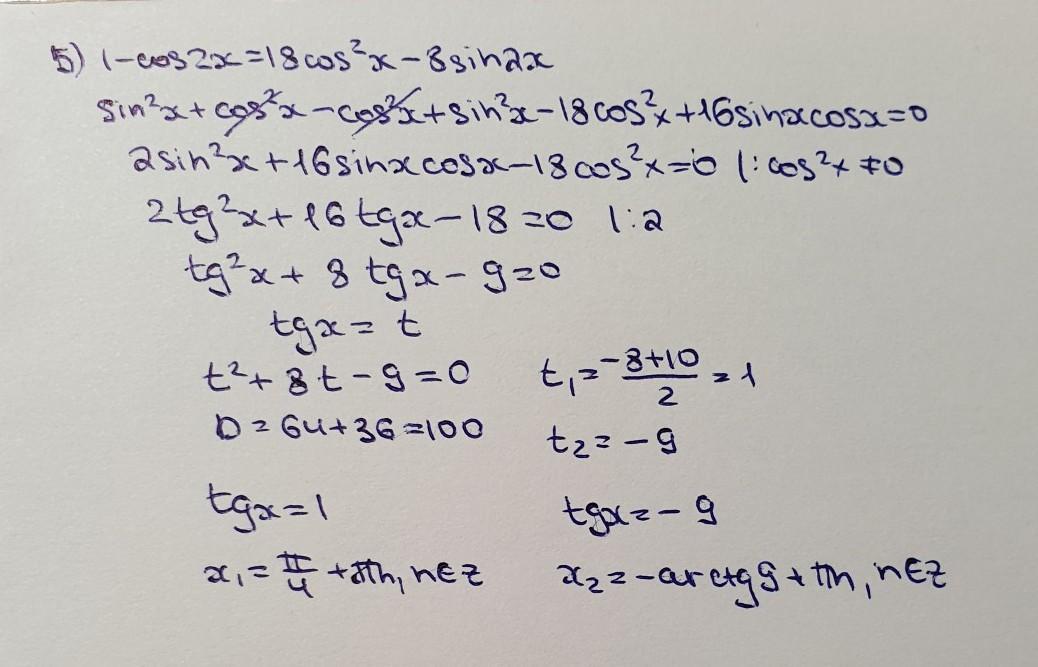 5) 1-cos2x=18cos²x-8sin2x
sin²x+cos²x-cos²x+sin²x-18cos²x+16sinxcosx=0
2sin²x+16sinxcosx-18cos²x=0 |:cos²x≠0
2tg²x+16tgx-18=0 |:2
tg²x+8tgx-9=0
tgx=t
t²+8t-9=0 t₁=(-8+10)/2=1
D=64+36=100 t₂=-9
tgx=1 tgx=-9
x₁=π/4+πn, n∈Z x₂=-arctg9+πn, n∈Z